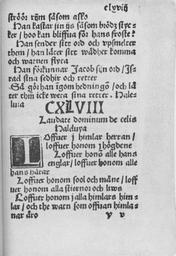 clxviij
ströör rijm såsom asko
Han kastar sin ijs såsom brödz stycker
ker / hoo kan bliffua för hans froste?
Han sender sitt ord och vpsmelter
them / han låter sitt wädher komma
och warnen flyta
Han förkunnar Jacob sijn ord / Israel
rael sina sedher och retter
Så gör han ingom hedningom / och låter
them icke weta sina retter. Haleluia
luia
CXLVIII
Laudate dominum de celis
Haleluya
LOffuer j himlar herran /
loffuer honom j högdene
Loffuer honom alle hans
englar / loffuer honom alle
hans härar
Loffuer honom sool och måne / loffuer
uer honom alla stiernor och liws
Loffuer honom j alla himlars himlar
lar / och the watn som offuan himlanar
nar äro